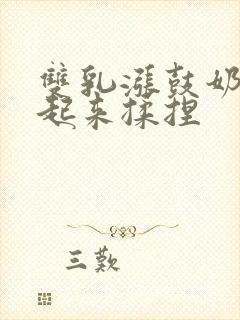 雙乳漲鼓奶
起来揉捏
三歎